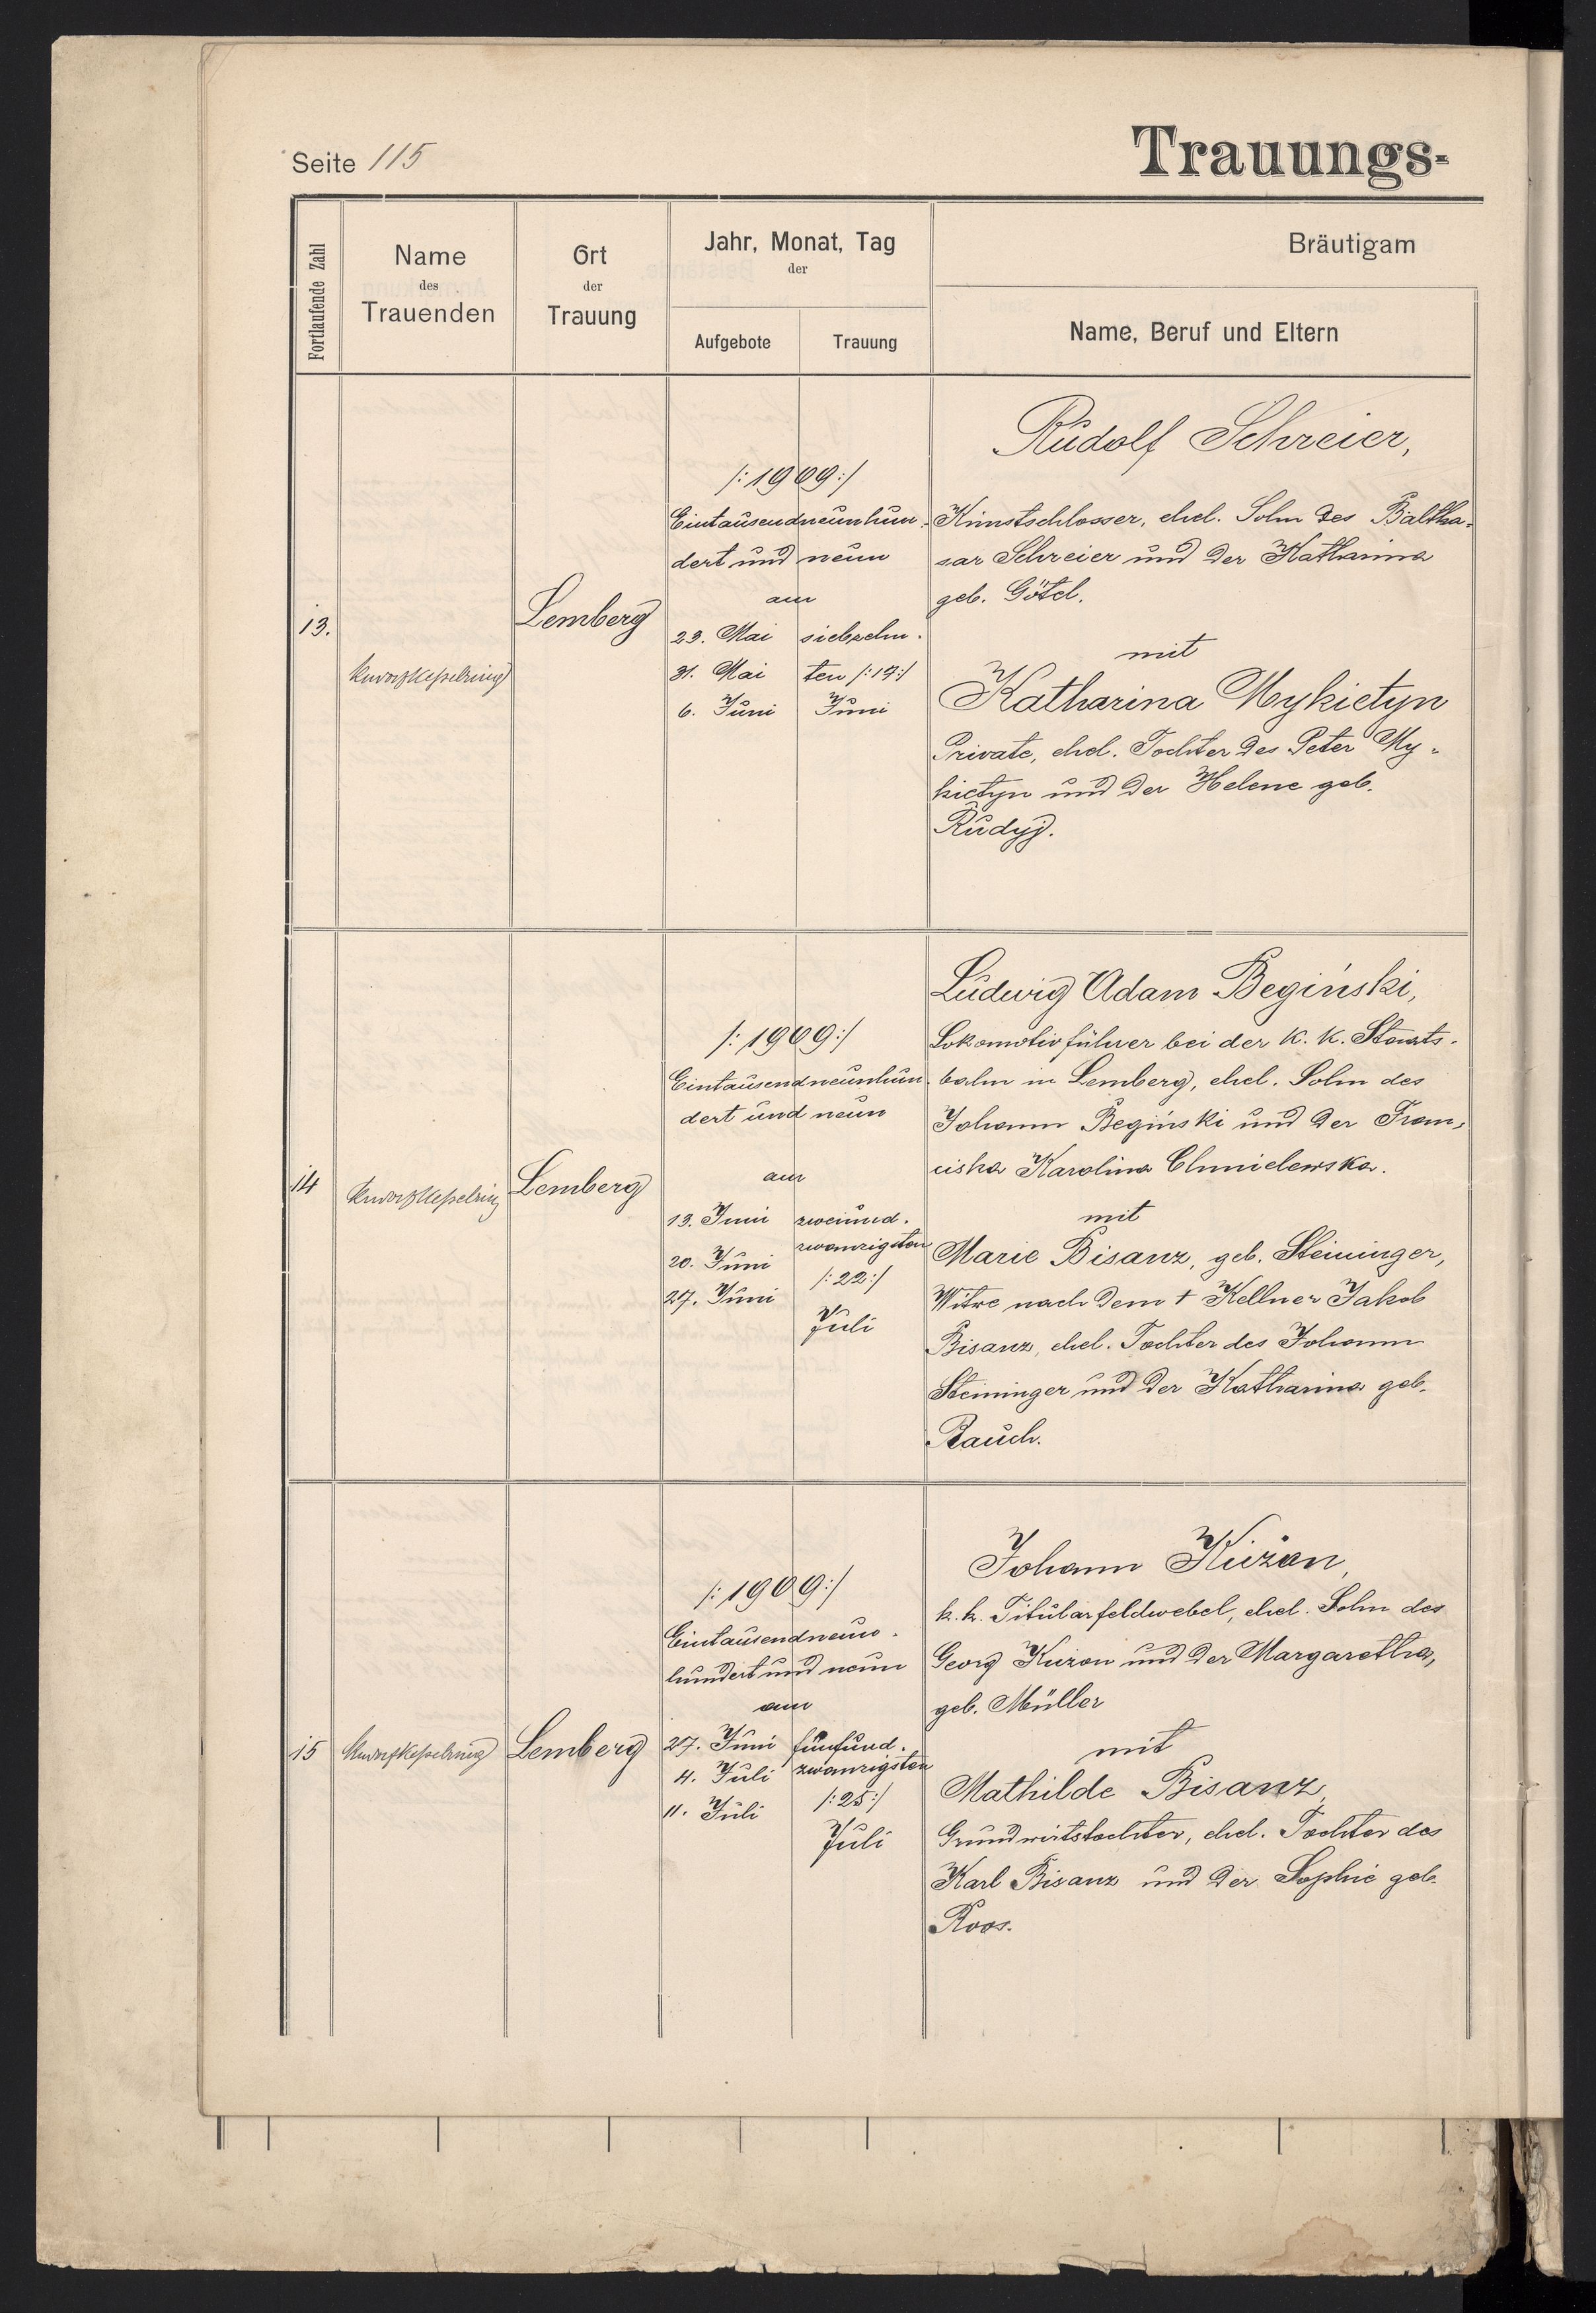 Seite 115
Trauungs-
Fortlaufende Zahl
Name
des
Trauenden
Ort
der
Trauung
Jahr, Monat, Tag
der
Aufgebote
Trauung
Bräutigam
Name, Beruf und Eltern
13.
Lemberg
/: 1909 :/
Eintausendneunhun-
dert und neun
am
23. Mai
31. Mai
6. Juni
siebzehn-
ten /: 17 :/
Juni
Rudolf Schreier,
Kunstschlosser, ehel. Sohn des Baltha-
sar Schreier und der Katharina
geb. Götel.
mit
Katharina Mykietyn
Private, ehel. Tochter des Peter My-
kietyn und der Helene geb.
Rudyj.
14
Lemberg
/: 1909 :/
Eintausendneunhun-
dert und neun
am
13. Juni
20. Juni
27. Juni
zweiund-
zwanzigsten
/: 22 :/
Juli
Ludwig Adam Begiński,
Lokomotivführer bei der K. K. Staats-
bahn in Lemberg, ehel. Sohn des
Johann Begiński und der Fran-
ciska Karolina Chmielewska.
mit
Marie Bisanz, geb. Steininger,
Witwe nach dem † Kellner Jakob
Bisanz, ehel. Tochter des Johann
Steininger und der Katharina geb.
Rauch.
15
Lemberg
/: 1909 :/
Eintausendneun-
hundert und neun
am
27. Juni
4. Juli
11. Juli
fünfund-
zwanzigsten
/: 25 :/
Juli
Johann Kużan,
k. k. Titularfeldwebel, ehel. Sohn des
Georg Kuzan und der Margaretha,
geb. Müller
mit
Mathilde Bisanz,
Grundwirtstochter, ehel. Tochter des
Karl Bisanz und der Sophie geb.
Roos.